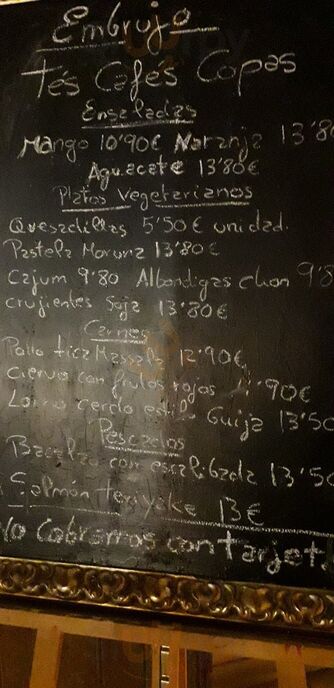 Embrujo
Tés Cafés Copas
Ensaladas
Mango 10'90€ Naranja 13'8
Aguacate 13'80€
Platos Vegetarianos
Quesadillas 5'50€ unidad.
Pastela Moruna 13'80€
Cajum 9'80 Albondigas chon 9'8
crujientes Soja 13'80€
Carnes
Pollo tica Massala 12'90€
Ciervo con frutos rojos 90€
Lomo cerdo estilo Guija 13'50
Pescados
Bacalao con escalibada 13'50
Salmón Teriyake 13€
No Cobramos con Tarjet